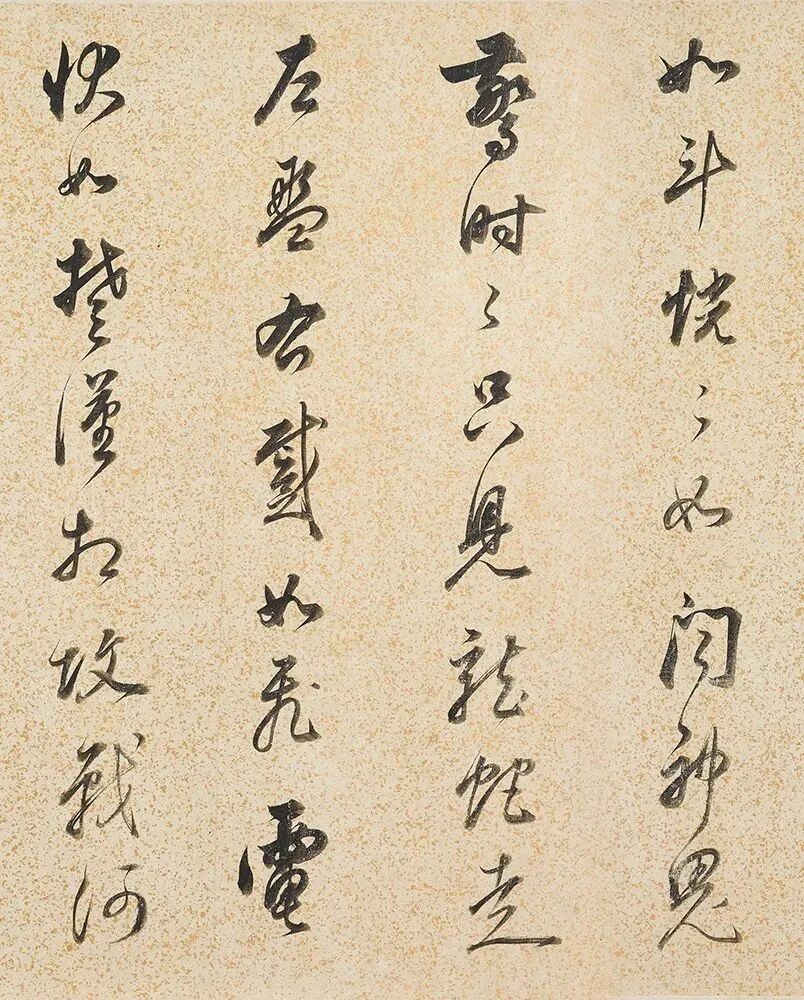 如斗恍々如聞神鬼
驚時々只見龍蛇走
左盤右蹙如飛電
狀如楚漢相攻戰河